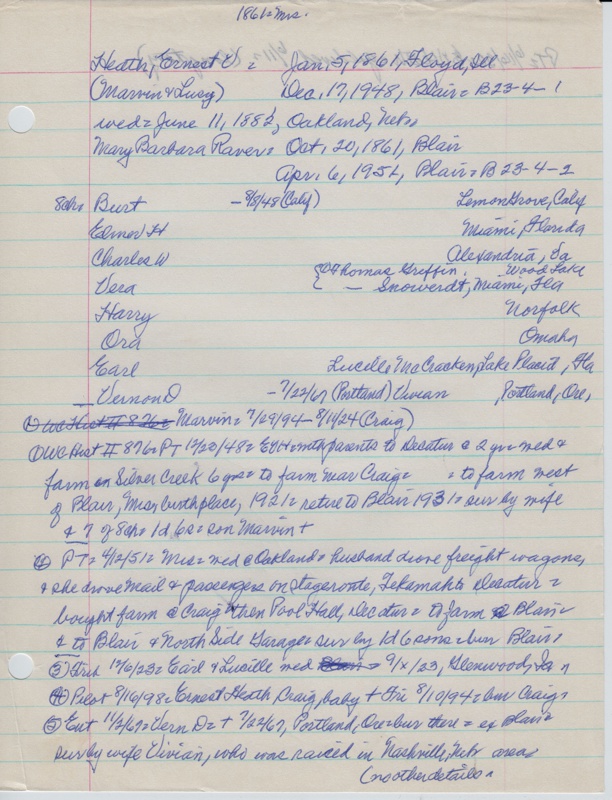 1861= Mrs.
Heath, Ernest V = Jan, 5, 1861, Floyd, Ill
(Marvin & Lucy) Dec, 17, 1948, Blair = B23-4-1
wed = June 11, 1882, Oakland, Nebr
Mary Barbara Raver = Oct, 20, 1861, Blair
Apr, 6, 1951, Blair = B23-4-2
8ch= Burt - 8/8/48 (Calif) Lemon Grove, Calif
Elmer H Miami, Florida
Charles W Alexandria, Va
Vera { Thomas Griffin, Wood Lake
— Snowerdt, Miami, Fla
Harry Norfolk
Ora Omaha
Earl Lucille McCracken, Lake Placid, Fla
Vernon D - 7/22/67 (Portland) Vivian , Portland, Ore,
① WC Hist II 876= Marvin = 7/29/94 - 8/11/24 (Craig)
① WC Hist II 876= PT 12/20/48= EVH= with parents to Decatur @ 2 yr= wed &
farm on Silver Creek 6 yrs= to farm near Craig= = to farm west
of Blair, Mrs birthplace, 1921= retire to Blair 1931= sur by wife
& 7 of 8ch= 1d 6s= son Marvin +
② PT= 4/12/51= Mrs= wed @ Oakland= husband drove freight wagons,
& she drove mail & passengers on stageroute, Tekamah to Decatur=
bought farm @ Craig then Pool Hall, Decatur= to farm @ Blair=
& to Blair & North Side Garage= sur by 1d 6 sons= bur Blair=
③ 12/6/23= Earl & Lucille wed 9/x/23, Glenwood, Ia
④ Pilot 8/16/98= Ernest Heath, Craig, baby + Fri 8/10/94= bur Craig=
⑤ Ent 11/2/67= Vern D= + 7/22/67, Portland, Ore= bur there= ex Blair=
sur by wife Vivian, who was raised in Nashville, Nebr area=
(no other details=